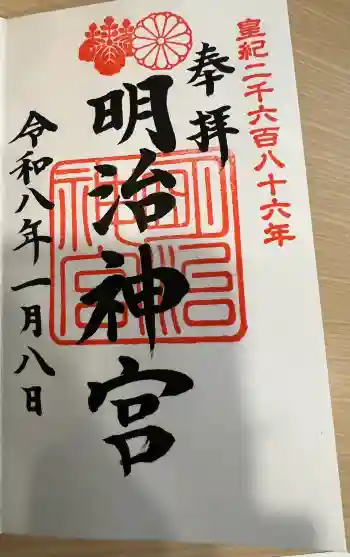 皇紀二千六百八十六年
奉拝
明治神宮
明治
神宮
令和八年一月八日